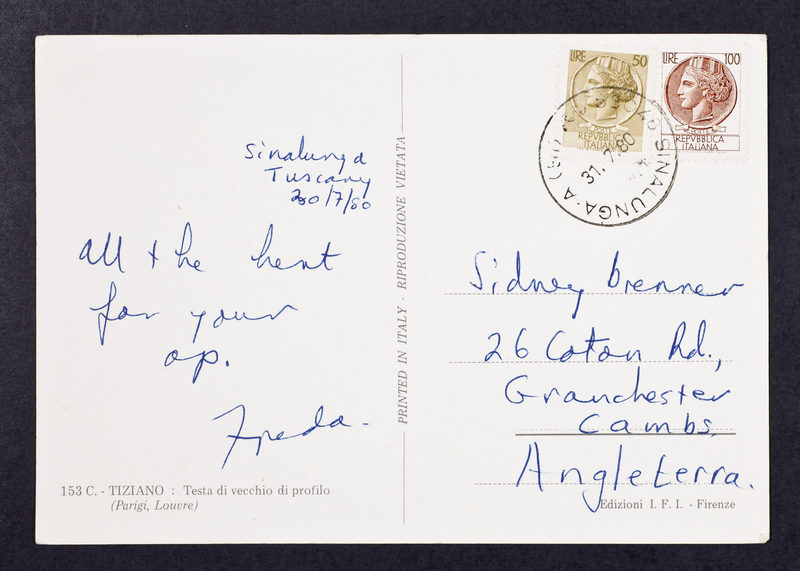 Sinalunga
Tuscany
30/7/80
All the best
for your
op.
Freda.
153 C. - TIZIANO : Testa di vecchio di profilo
(Parigi, Louvre)
PRINTED IN ITALY · RIPRODUZIONE VIETATA
LIRE 50
REPVBBLICA
ITALIANA
LIRE 100
REPVBBLICA
ITALIANA
SINALUNGA · A (SI)
31.7.80
Sidney Brenner
26 Coton Rd.,
Granchester
Cambs.
Angleterra.
Edizioni I. F. I. - Firenze